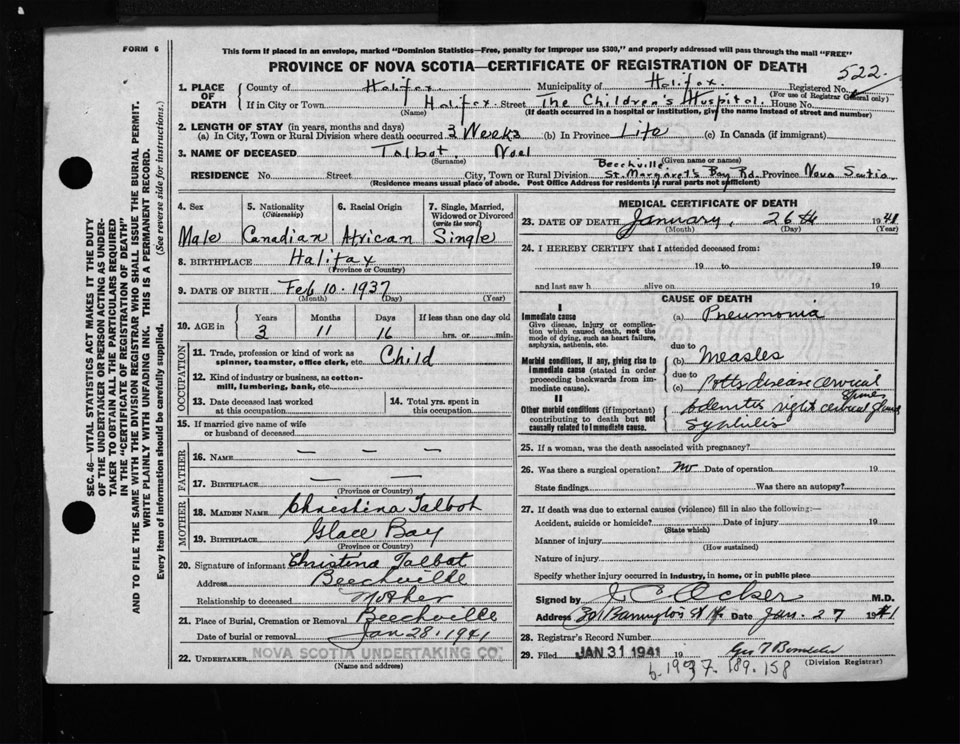 FORM 6
This form if placed in an envelope, marked "Dominion Statistics—Free, penalty for improper use $300," and properly addressed will pass through the mail "FREE"
PROVINCE OF NOVA SCOTIA—CERTIFICATE OF REGISTRATION OF DEATH
522
1. PLACE OF DEATH
County of Halifax Municipality of Halifax Registered No.
(For use of Registrar General only)
If in City or Town Halifax Street The Children's Hospital House No.
(Name) (If death occurred in a hospital or institution, give the name instead of street and number)
2. LENGTH OF STAY (in years, months and days)
(a) In City, Town or Rural Division where death occurred 3 Weeks (b) In Province Life (c) In Canada (if immigrant)
3. NAME OF DECEASED Talbot Noel
(Surname) (Given name or names)
Beechville
RESIDENCE No. Street City, Town or Rural Division St. Margaret's Bay Rd. Province Nova Scotia
(Residence means usual place of abode. Post Office Address for residents in rural parts not sufficient)
4. Sex
Male
5. Nationality
(Citizenship)
Canadian
6. Racial Origin
African
7. Single, Married, Widowed or Divorced
(write the word)
Single
8. BIRTHPLACE Halifax
(Province or Country)
9. DATE OF BIRTH Feb 10. 1937
(Month) (Day) (Year)
10. AGE in
Years Months Days If less than one day old
3 11 16 hrs. or min.
OCCUPATION
11. Trade, profession or kind of work as spinner, teamster, office clerk, etc. Child
12. Kind of industry or business, as cotton-mill, lumbering, bank, etc.
13. Date deceased last worked at this occupation
14. Total yrs. spent in this occupation
15. If married give name of wife or husband of deceased
FATHER
16. NAME — — —
17. BIRTHPLACE — —
(Province or Country)
MOTHER
18. MAIDEN NAME Christina Talbot
19. BIRTHPLACE Glace Bay
(Province or Country)
20. Signature of informant Christina Talbot
Address Beechville
Relationship to deceased Mother
21. Place of Burial, Cremation or Removal Beechville
Date of burial or removal Jan 28, 1941
22. UNDERTAKER NOVA SCOTIA UNDERTAKING CO.
(Name and address)
MEDICAL CERTIFICATE OF DEATH
23. DATE OF DEATH January, 26th 1941
(Month) (Day) (Year)
24. I HEREBY CERTIFY that I attended deceased from:
19 to 19
and last saw h alive on 19
CAUSE OF DEATH
I
Immediate cause
Give disease, injury or complication which caused death, not the mode of dying, such as heart failure, asphyxia, asthenia, etc.
(a) Pneumonia
due to
Morbid conditions, if any, giving rise to immediate cause (stated in order proceeding backwards from immediate cause).
(b) Measles
due to
(c) Potts disease cervical spine
II
Other morbid conditions (if important) contributing to death but not causally related to immediate cause.
Adenitis right cervical glands
Syphilis
25. If a woman, was the death associated with pregnancy?
26. Was there a surgical operation? No Date of operation 19
State findings Was there an autopsy?
27. If death was due to external causes (violence) fill in also the following:—
Accident, suicide or homicide? Date of injury 19
(State which)
Manner of injury
(How sustained)
Nature of injury
Specify whether injury occurred in industry, in home, or in public place
Signed by J C Acker M.D.
Address Barrington St Date Jan. 27 1941
28. Registrar's Record Number
29. Filed JAN 31 1941 19
(Division Registrar)
6.1937.189.158
SEC. 46—VITAL STATISTICS ACT MAKES IT THE DUTY
OF THE UNDERTAKER OR PERSON ACTING AS UNDER-
TAKER TO OBTAIN ALL THE PARTICULARS REQUIRED
IN THE "CERTIFICATE OF REGISTRATION OF DEATH" AND TO FILE THE SAME WITH THE DIVISION REGISTRAR WHO SHALL ISSUE THE BURIAL PERMIT.
WRITE PLAINLY WITH UNFADING INK. THIS IS A PERMANENT RECORD.
Every item of information should be carefully supplied. (See reverse side for instructions.)